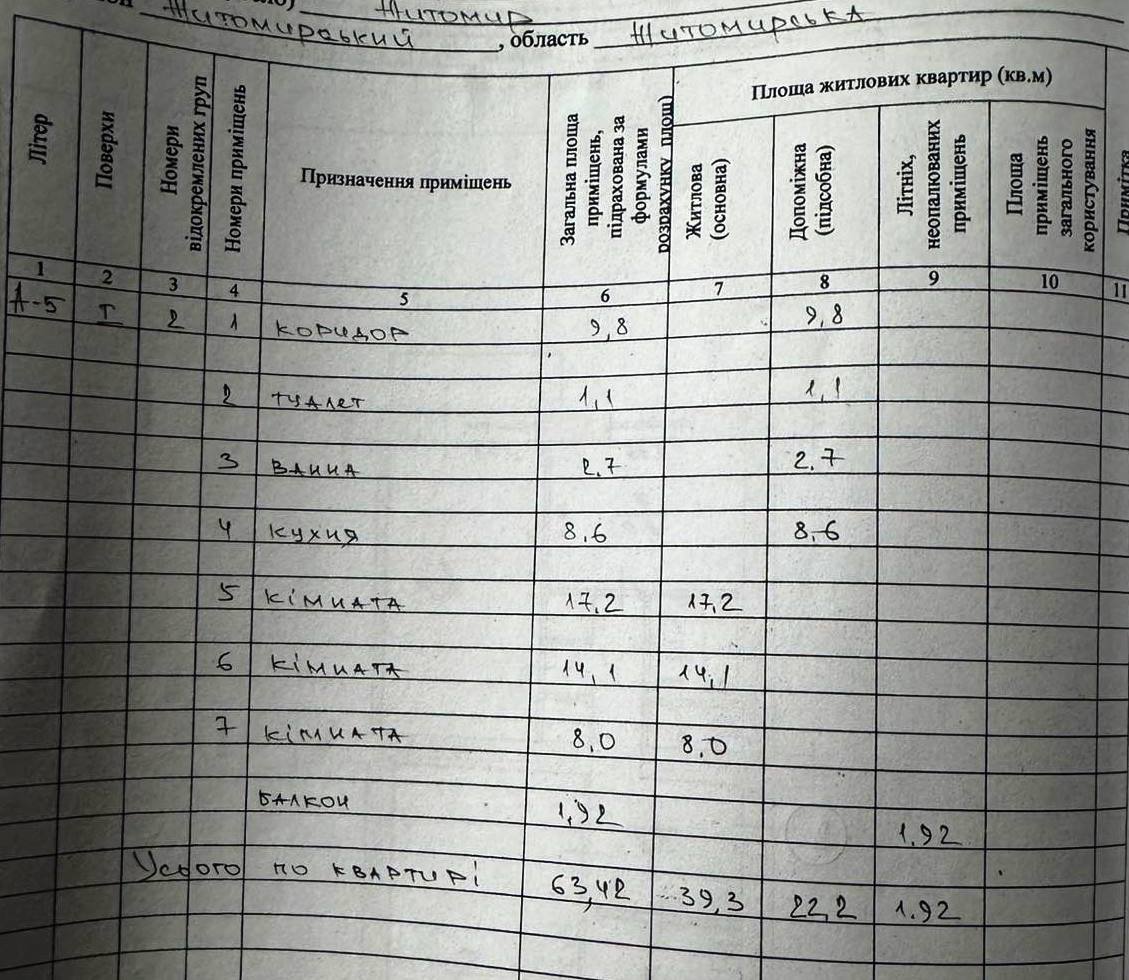 Житомир
Житомирський , область Житомирська
Літер
Поверхи
Номери відокремлених груп
Номери приміщень
Призначення приміщень
Загальна площа приміщень, підрахована за формулами розрахунку площ)
Площа житлових квартир (кв.м)
Житлова (основна)
Допоміжна (підсобна)
Літніх, неопалюваних приміщень
Площа приміщень загального користування
Примітка
1 2 3 4 5 6 7 8 9 10 11
А-5 I 2 1 коридор 9,8 9,8
2 туалет 1,1 1,1
3 ванна 2.7 2.7
4 кухня 8.6 8.6
5 кімната 17,2 17,2
6 кімната 14,1 14,1
7 кімната 8,0 8,0
балкон 1,92 1.92
Усього по квартирі 63,42 39,3 22,2 1.92